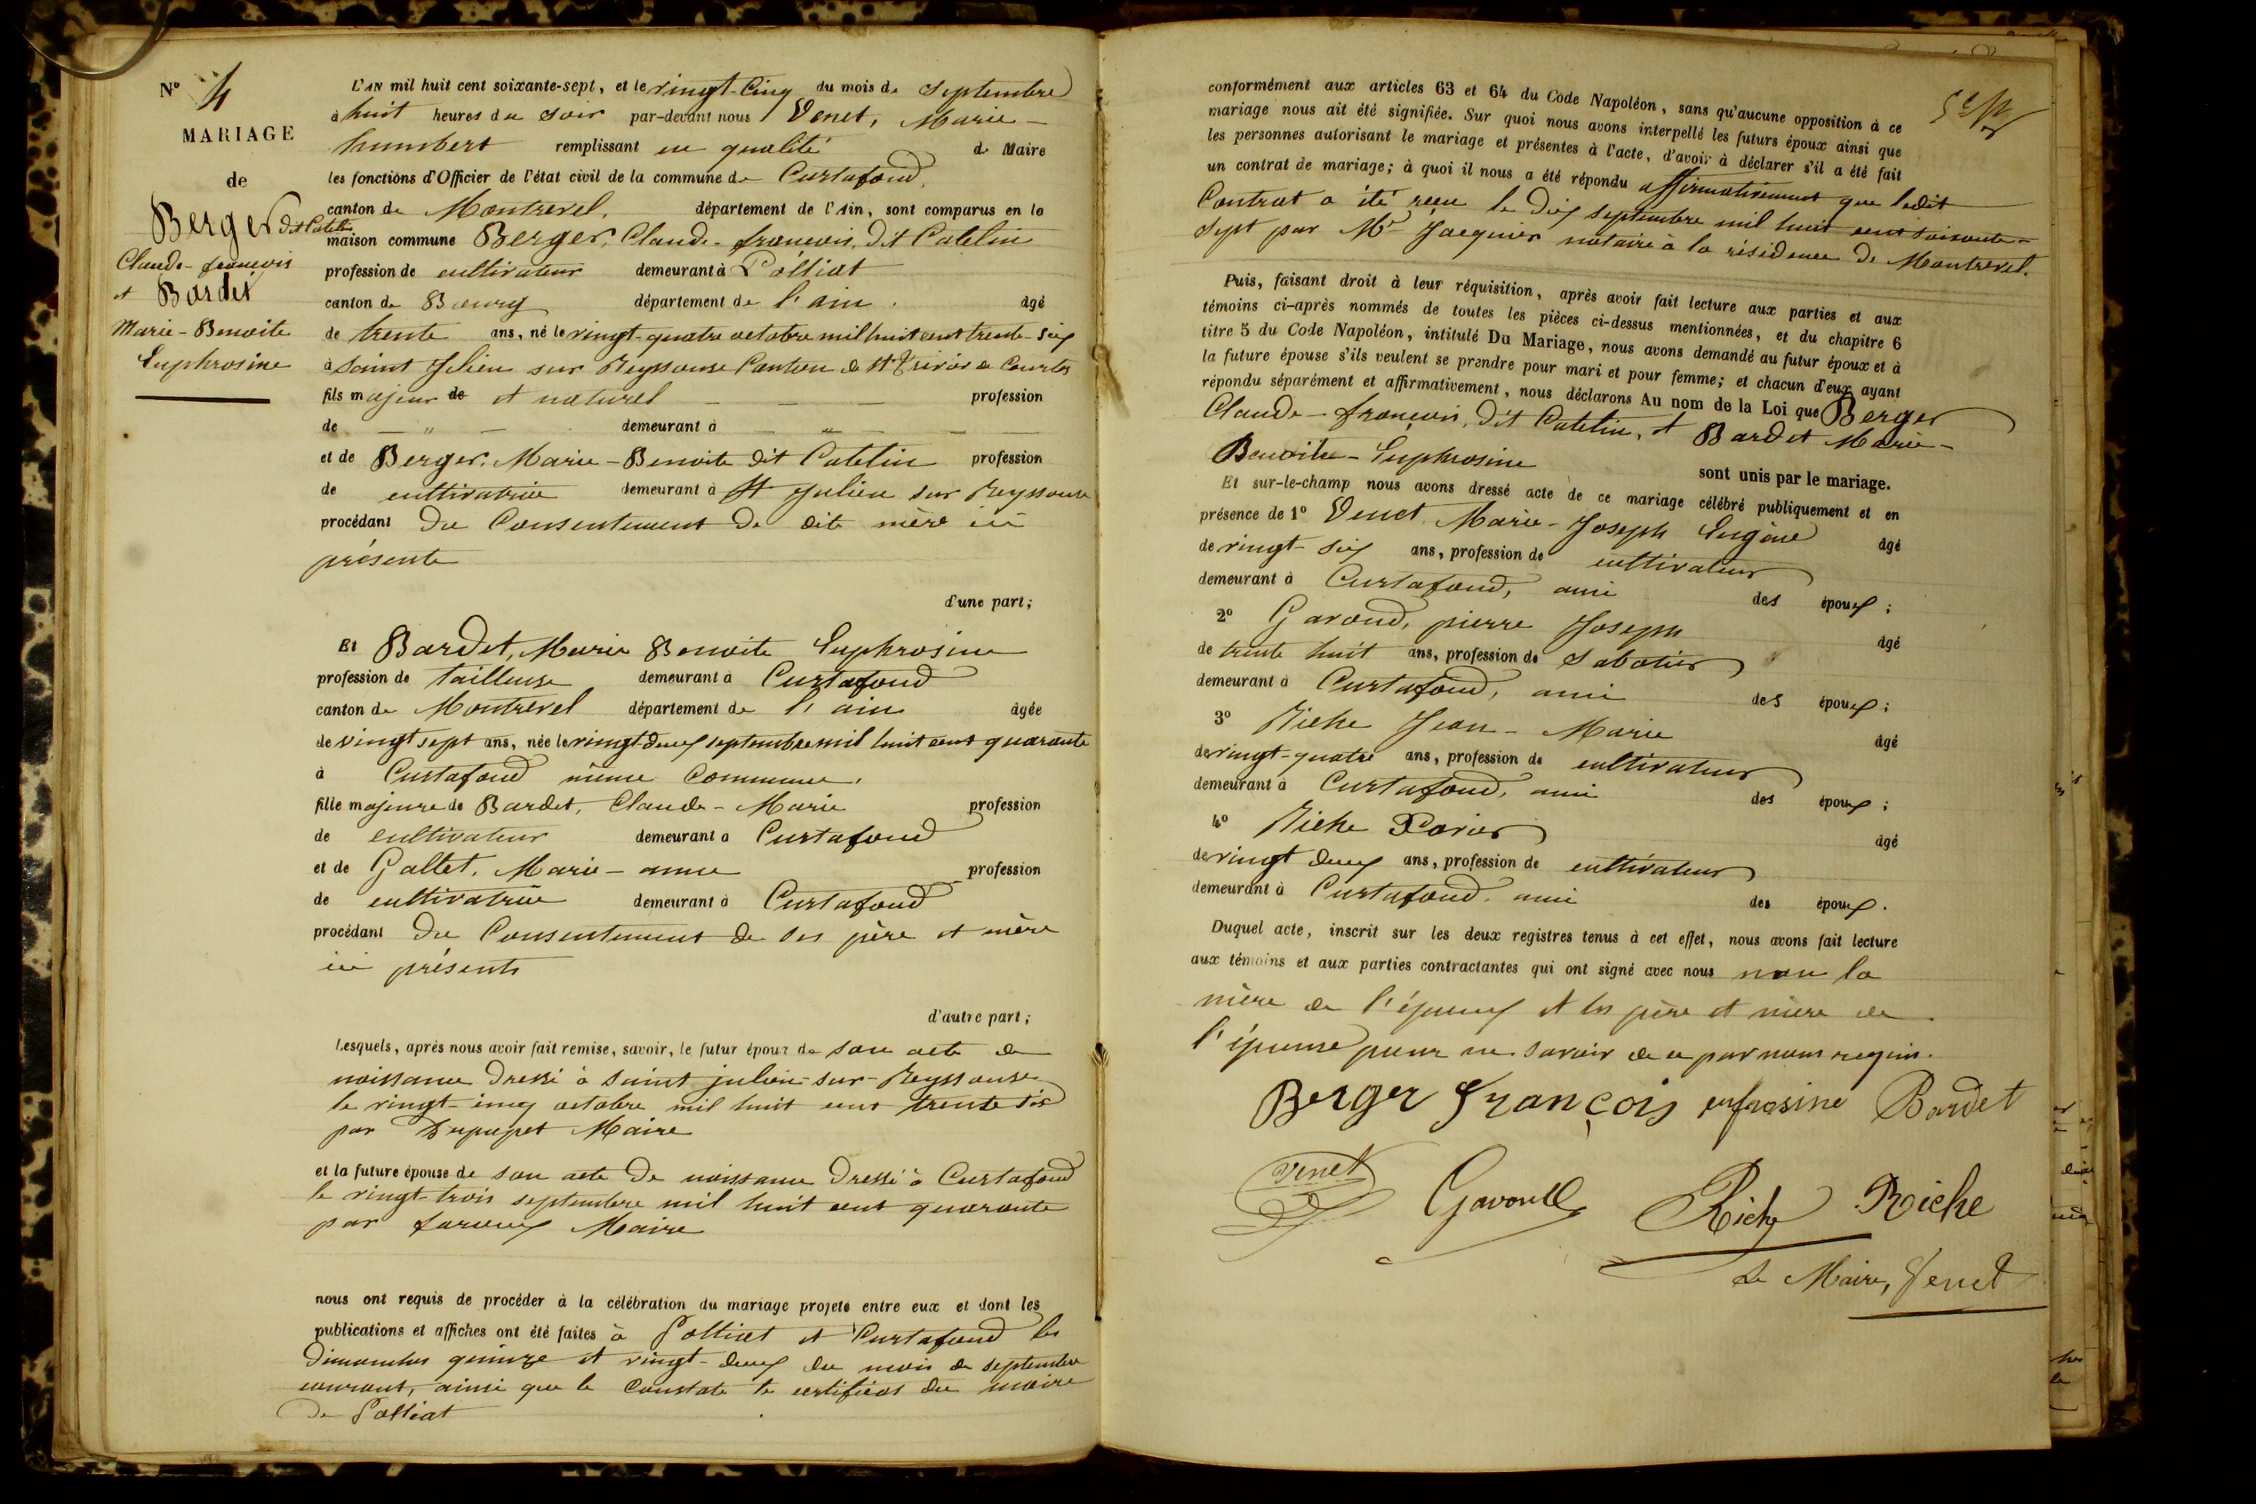 N° 4
MARIAGE
de
Berger dit Catelin
Claude-françois
et Bardet
Marie-Benoite
Euphrosine
L'AN mil huit cent soixante-sept, et le vingt-Cinq du mois de Septembre
à huit heures du soir par-devant nous Venet, Marie-
humbert remplissant en qualité de Maire
les fonctions d'Officier de l'état civil de la commune de Curtafond,
canton de Montrevel, département de l'Ain, sont comparus en la
maison commune Berger, Claude-françois, dit Catelin
profession de cultivateur demeurant à Polliat
canton de Bourg département de l'ain. âgé
de trente ans, né le vingt-quatre octobre mil huit cent trente-six
à Saint Julien sur Reyssouse Canton de St Trivier de Courtes
fils majeur de et naturel profession
de — " — demeurant à — " —
et de Berger, Marie-Benoite dit Catelin profession
de cultivatrice demeurant à St Julien sur Reyssouse
procédant du Consentement de dite mère ici
présente
d'une part;
Et Bardet, Marie Benoite Euphrosine
profession de tailleuse demeurant à Curtafond
canton de Montrevel département de l'ain âgée
de vingt sept ans, née le vingt-deux septembre mil huit cent quarante
à Curtafond même Commune.
fille majeure de Bardet, Claude-Marie profession
de cultivateur demeurant à Curtafond
et de Gallet, Marie-anne profession
de cultivatrice demeurant à Curtafond
procédant du Consentement de ses père et mère
ici présents
d'autre part;
Lesquels, après nous avoir fait remise, savoir, le futur époux de son acte de
naissance dressé à Saint julien-sur-Reyssouse
le vingt-cinq octobre mil huit cent trente six
par Dupupet Maire
et la future épouse de son acte de naissance dressé à Curtafond
le vingt-trois septembre mil huit cent quarante
par Maire
nous ont requis de procéder à la célébration du mariage projeté entre eux et dont les
publications et affiches ont été faites à Polliat et Curtafond les
dimanches quinze et vingt-deux du mois de septembre
courant, ainsi que le Constate le certificat du maire
de Polliat
conformément aux articles 63 et 64 du Code Napoléon, sans qu'aucune opposition à ce
mariage nous ait été signifiée. Sur quoi nous avons interpellé les futurs époux ainsi que
les personnes autorisant le mariage et présentes à l'acte, d'avoir à déclarer s'il a été fait
un contrat de mariage; à quoi il nous a été répondu affirmativement que ledit
Contrat a été reçu le dix septembre mil huit cent soixante-
sept par Me Jacquier notaire à la résidence de Montrevel.
Puis, faisant droit à leur réquisition, après avoir fait lecture aux parties et aux
témoins ci-après nommés de toutes les pièces ci-dessus mentionnées, et du chapitre 6
titre 5 du Code Napoléon, intitulé Du Mariage, nous avons demandé au futur époux et à
la future épouse s'ils veulent se prendre pour mari et pour femme; et chacun d'eux ayant
répondu séparément et affirmativement, nous déclarons Au nom de la Loi que Berger
Claude-françois, dit Catelin, et Bardet Marie-
Benoite-Euphrosine sont unis par le mariage.
Et sur-le-champ nous avons dressé acte de ce mariage célébré publiquement et en
présence de 1° Venet, Marie-Joseph Eugène âgé
de vingt-six ans, profession de cultivateur
demeurant à Curtafond, ami des époux;
2° Gavoud, pierre Joseph âgé
de trente huit ans, profession de Sabotier
demeurant à Curtafond, ami des époux;
3° Riche Jean-Marie âgé
de vingt-quatre ans, profession de cultivateur
demeurant à Curtafond, ami des époux;
4° Riche Xavier âgé
de vingt deux ans, profession de cultivateur
demeurant à Curtafond, ami des époux.
Duquel acte, inscrit sur les deux registres tenus à cet effet, nous avons fait lecture
aux témoins et aux parties contractantes qui ont signé avec nous non la
mère de l'époux et les père et mère de
l'épouse pour ne savoir de ce par nous requis.
Berger François eufrosine Bardet
Venet Gavoud Riche Riche
Le Maire, Venet